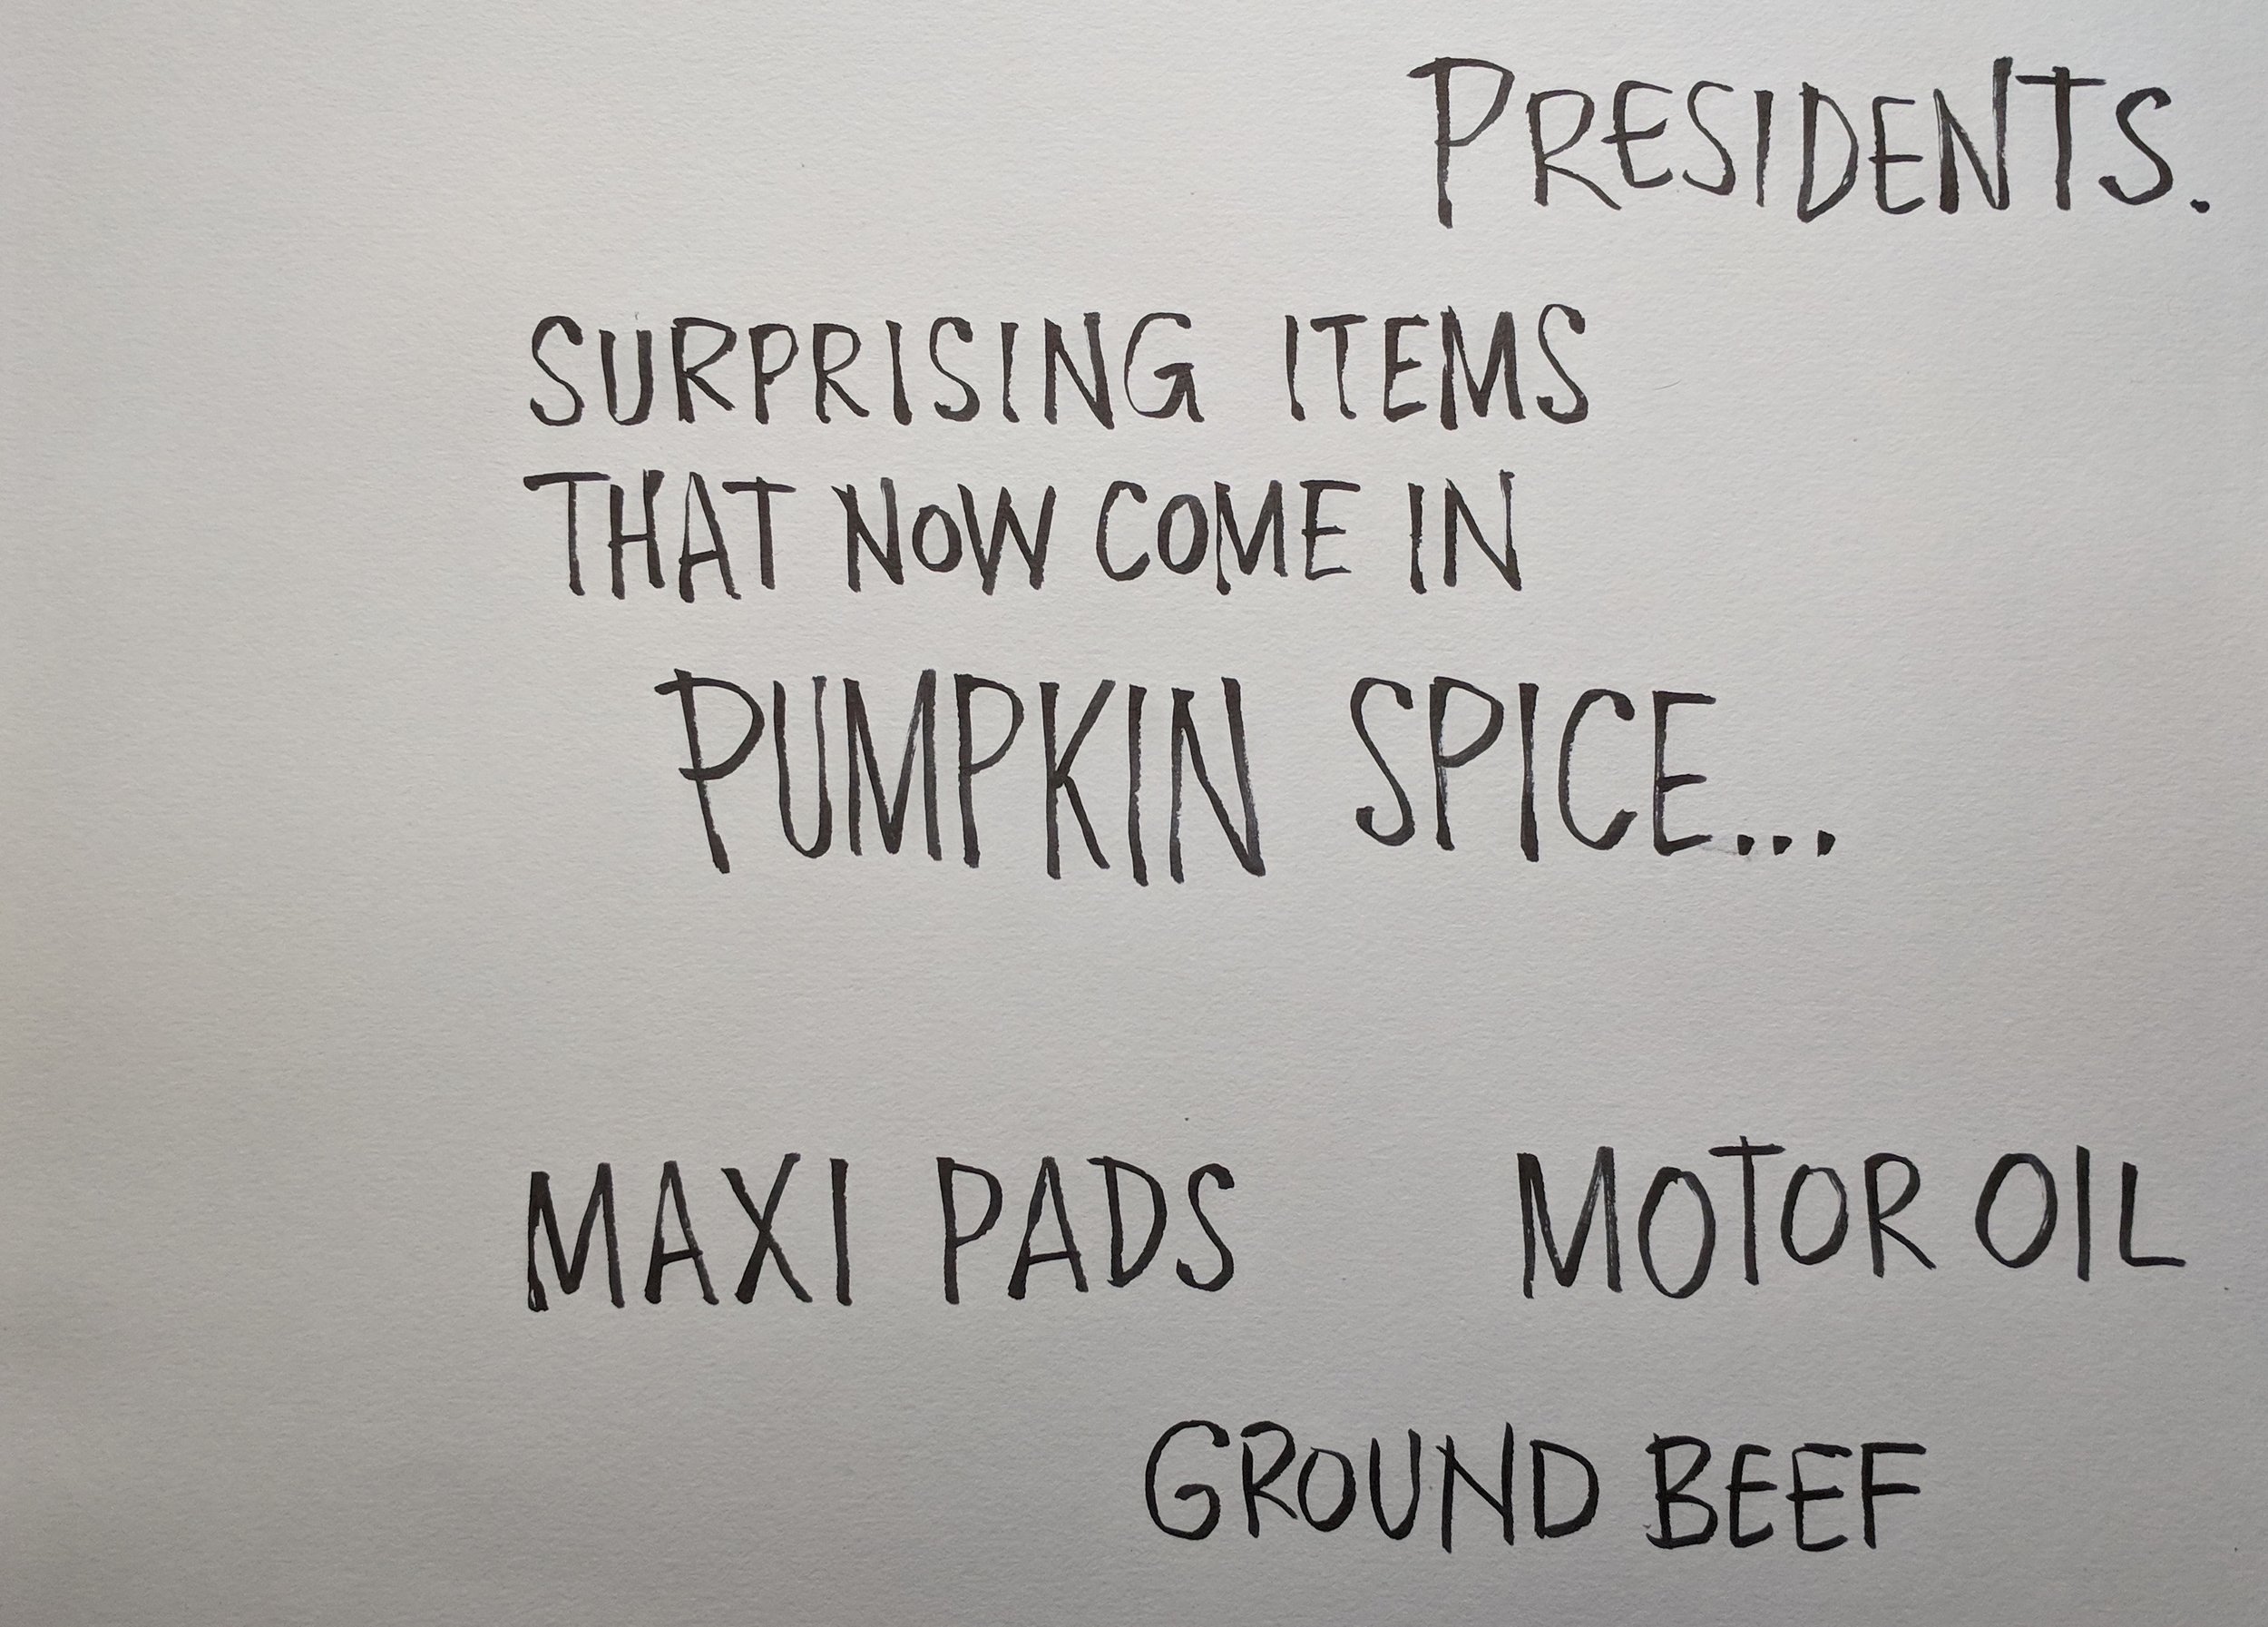 PRESIDENTS.
SURPRISING ITEMS
THAT NOW COME IN
PUMPKIN SPICE...
MAXI PADS
MOTOR OIL
GROUND BEEF